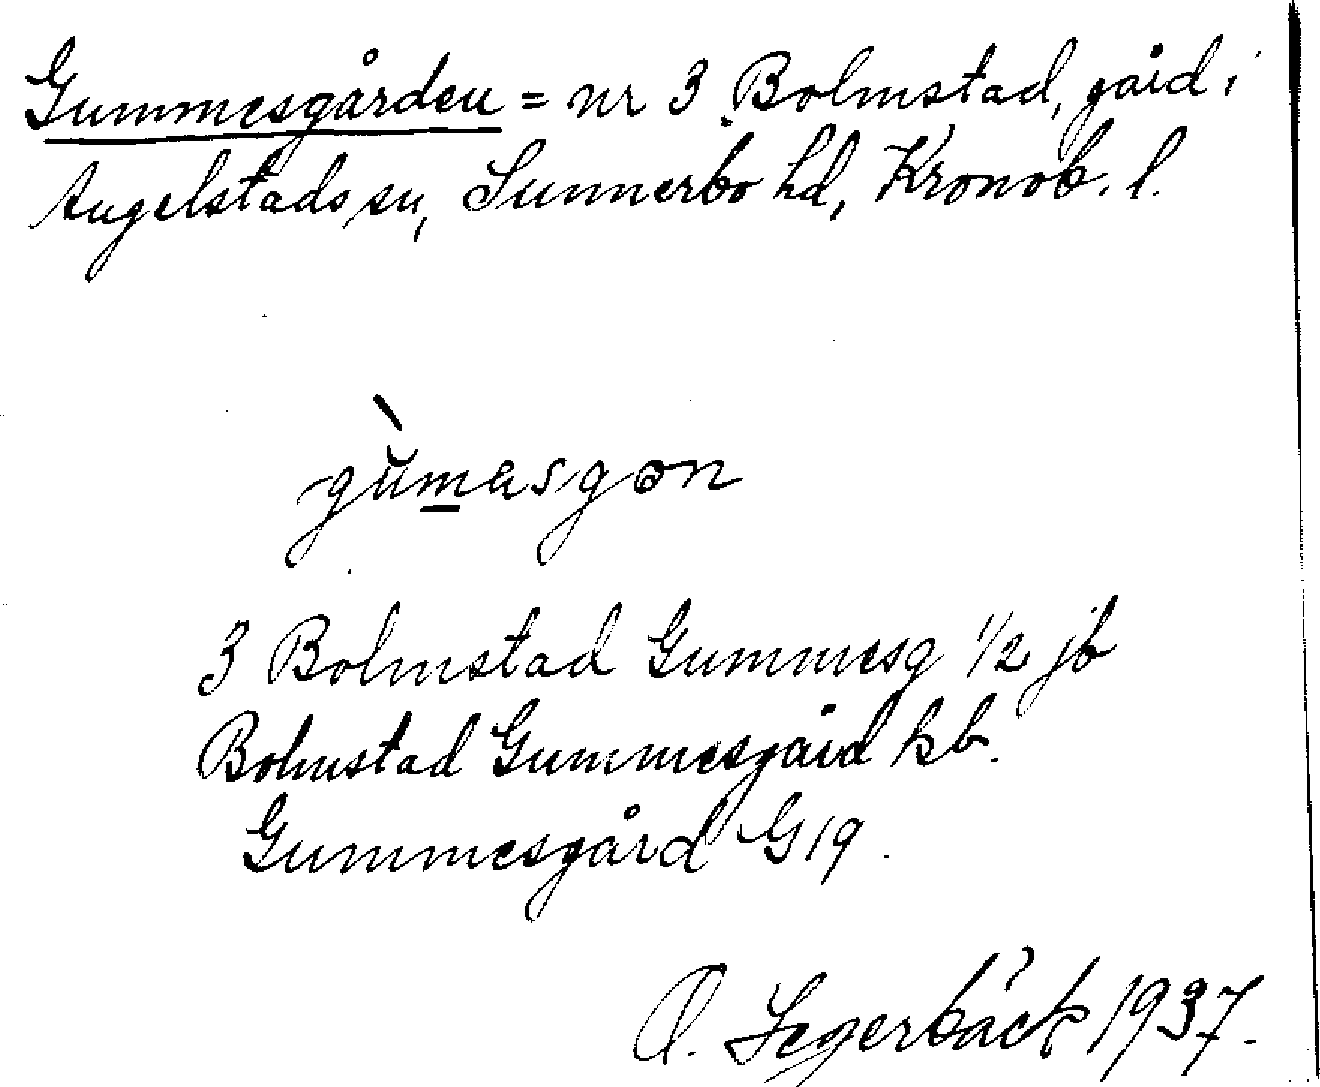 Gummesgården = nr 3 Bolmstad, gård i
Angelstads sn, Sunnerbo hd, Kronob. l.
gùmasgɵn
3 Bolmstad Gummesg 1/2 jb
Bolmstad Gummesgård kb.
Gummesgård G19.
O. Segerbäck 1937.